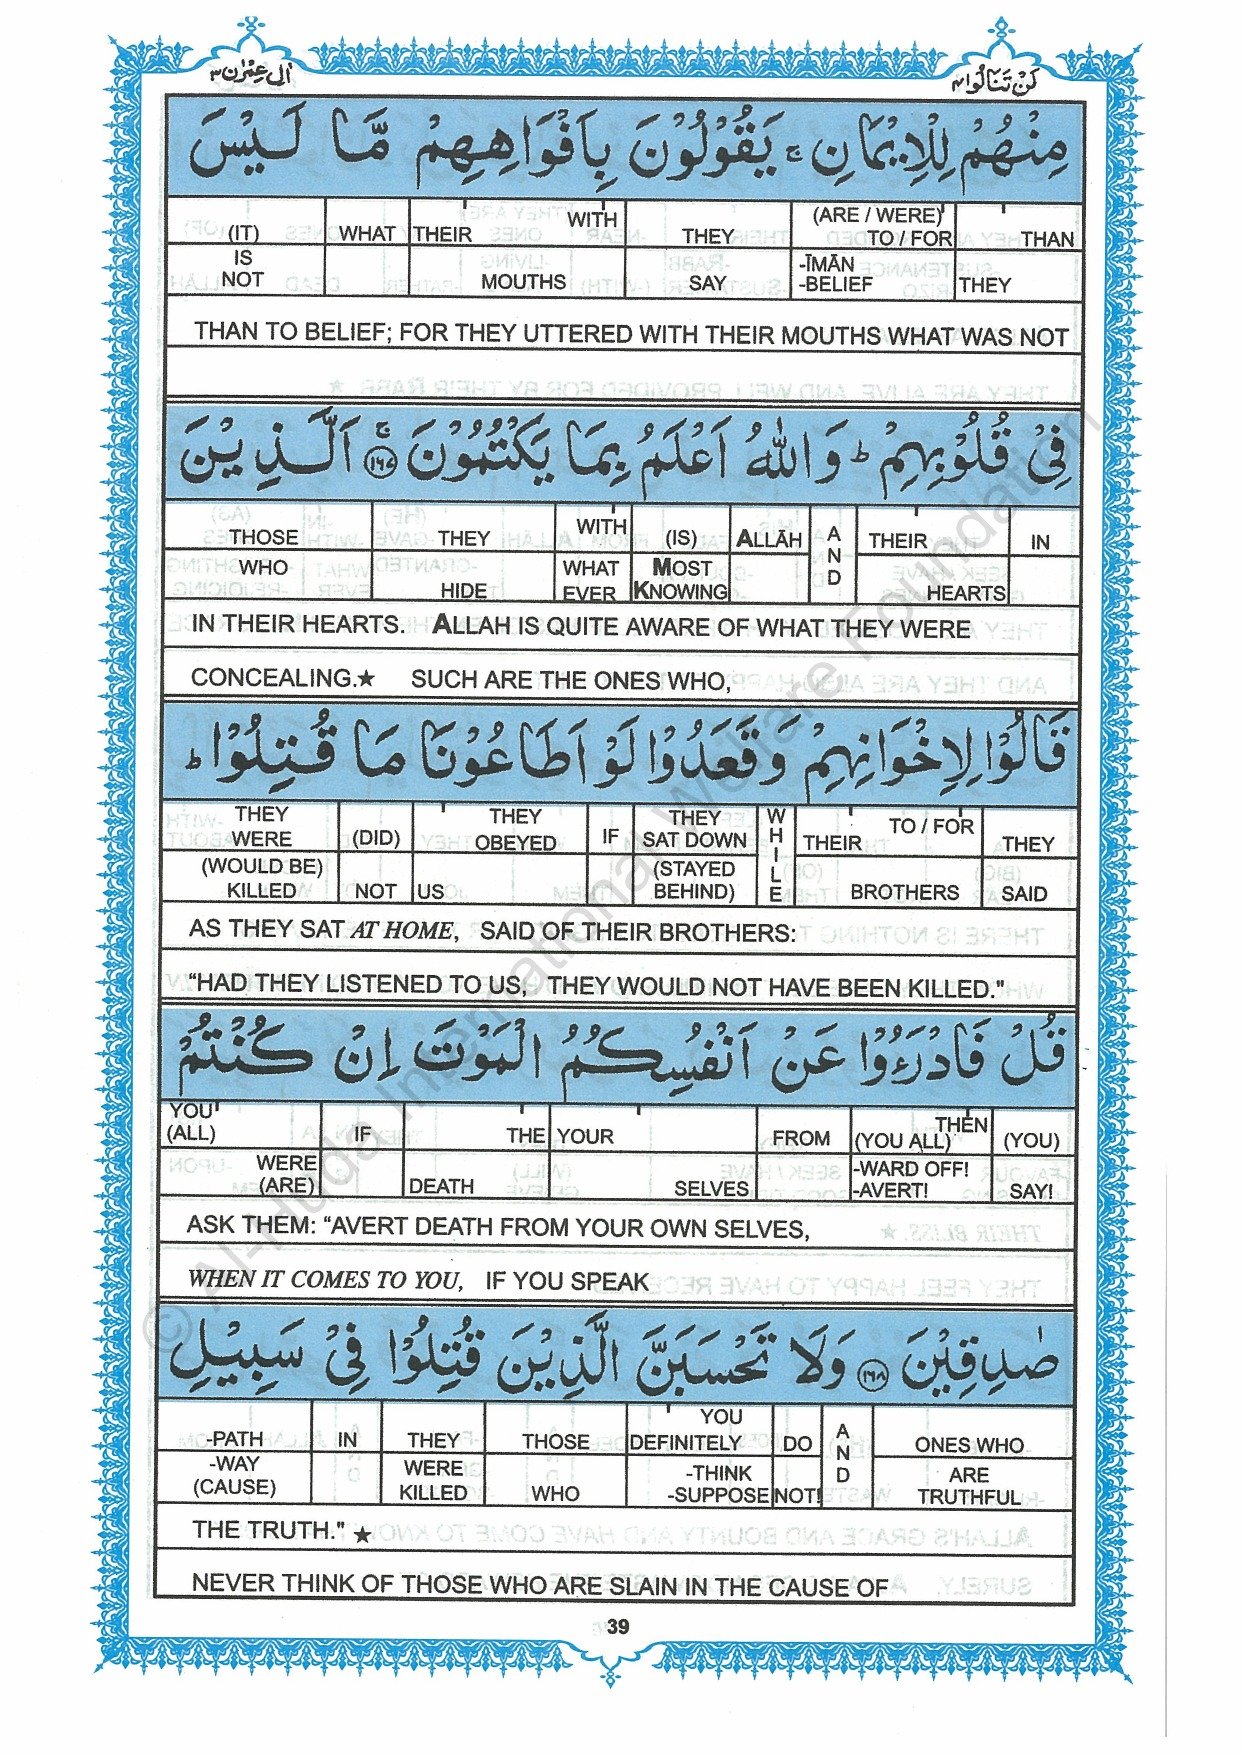 اٰلِ عِمْرٰن ٣
لَنْ تَنَالُوا ٤
مِنْهُمْ لِلْاِيْمَانِ ۚ يَقُوْلُوْنَ بِاَفْوَاهِهِمْ مَّا لَيْسَ
(IT) WHAT THEIR WITH THEY (ARE / WERE) TO / FOR THAN
IS NOT MOUTHS SAY -ĪMĀN -BELIEF THEY
THAN TO BELIEF; FOR THEY UTTERED WITH THEIR MOUTHS WHAT WAS NOT
فِيْ قُلُوْبِهِمْ ؕ وَاللّٰهُ اَعْلَمُ بِمَا يَكْتُمُوْنَ ۚ ﴿١٦٧﴾ اَلَّذِيْنَ
THOSE THEY WITH (IS) ALLĀH AND THEIR IN
WHO HIDE WHAT EVER MOST KNOWING HEARTS
IN THEIR HEARTS. ALLAH IS QUITE AWARE OF WHAT THEY WERE
CONCEALING.★ SUCH ARE THE ONES WHO,
قَالُوْا لِاِخْوَانِهِمْ وَقَعَدُوْا لَوْ اَطَاعُوْنَا مَا قُتِلُوْا ؕ
THEY WERE (DID) THEY OBEYED IF THEY SAT DOWN WHILE THEIR TO / FOR THEY
(WOULD BE) KILLED NOT US (STAYED BEHIND) BROTHERS SAID
AS THEY SAT AT HOME, SAID OF THEIR BROTHERS:
“HAD THEY LISTENED TO US, THEY WOULD NOT HAVE BEEN KILLED."
قُلْ فَادْرَءُوْا عَنْ اَنْفُسِكُمُ الْمَوْتَ اِنْ كُنْتُمْ
YOU (ALL) IF THE YOUR FROM THEN (YOU ALL) (YOU)
WERE (ARE) DEATH SELVES -WARD OFF! -AVERT! SAY!
ASK THEM: “AVERT DEATH FROM YOUR OWN SELVES,
WHEN IT COMES TO YOU, IF YOU SPEAK
صٰدِقِيْنَ ﴿١٦٨﴾ وَلَا تَحْسَبَنَّ الَّذِيْنَ قُتِلُوْا فِيْ سَبِيْلِ
-PATH IN THEY THOSE YOU DEFINITELY DO AND ONES WHO
-WAY (CAUSE) WERE KILLED WHO -THINK -SUPPOSE NOT! ARE TRUTHFUL
THE TRUTH." ★
NEVER THINK OF THOSE WHO ARE SLAIN IN THE CAUSE OF
39
© Al-Huda International Welfare Foundation